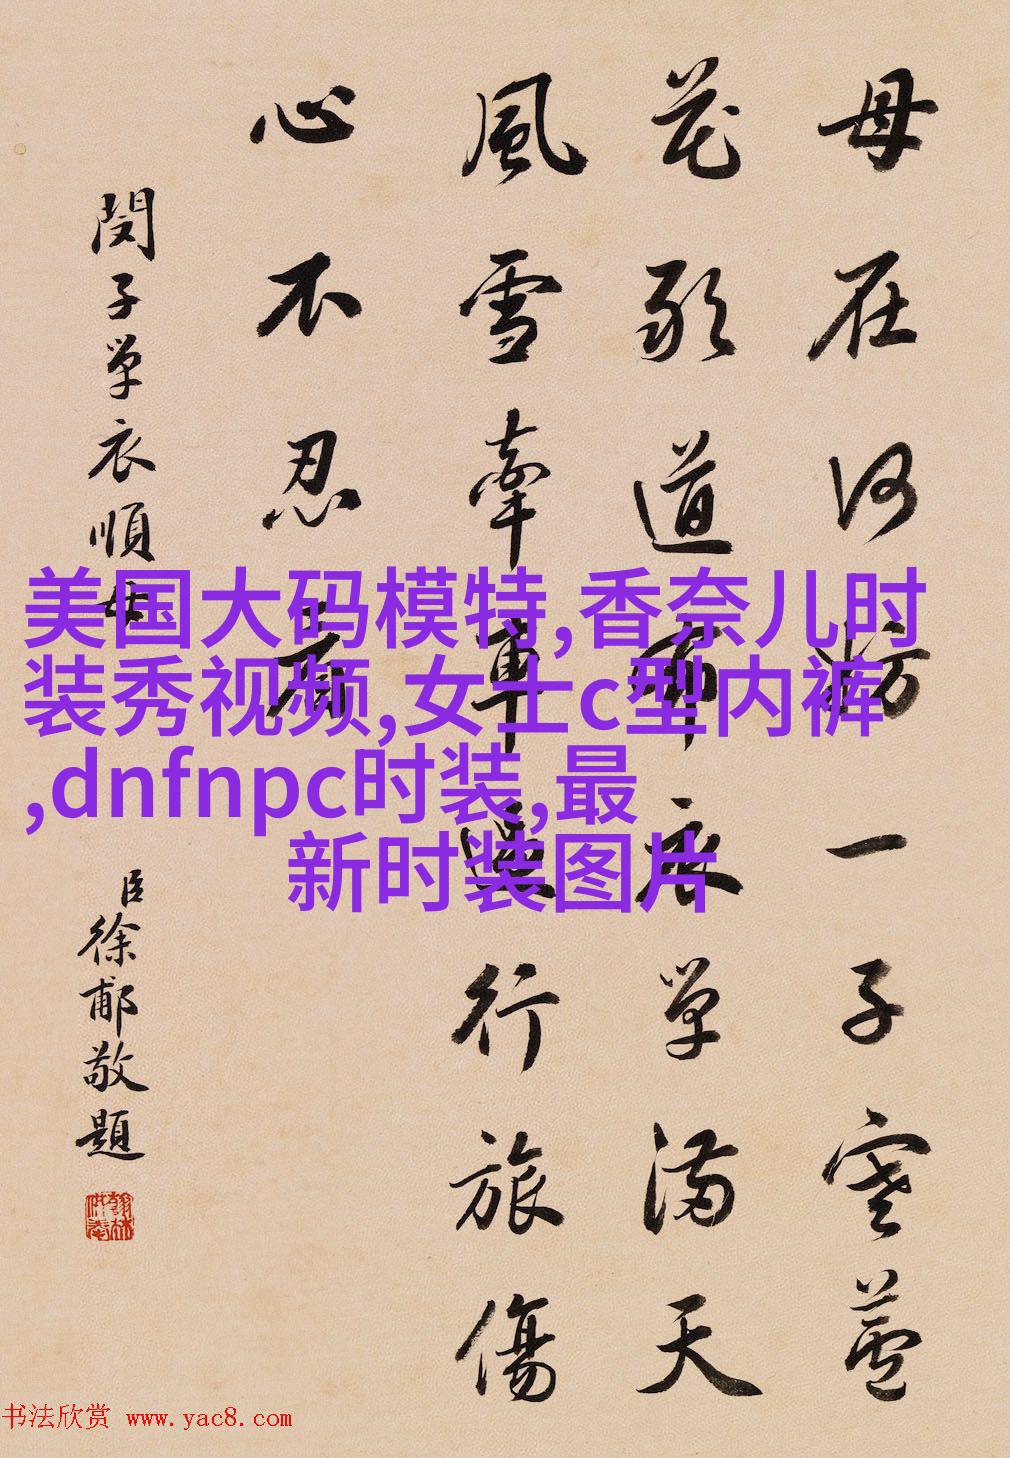 母在何妨一子寒蘆
花敢道布衣單滿天
風雪牽車行旅傷
心不忍看
閔子單衣順母
臣徐郙敬題
美国大码模特,香奈儿时
装秀视频,女士c型内裤
,dnfnpc时装,最
新时装图片
书法欣赏 www.yac8.com